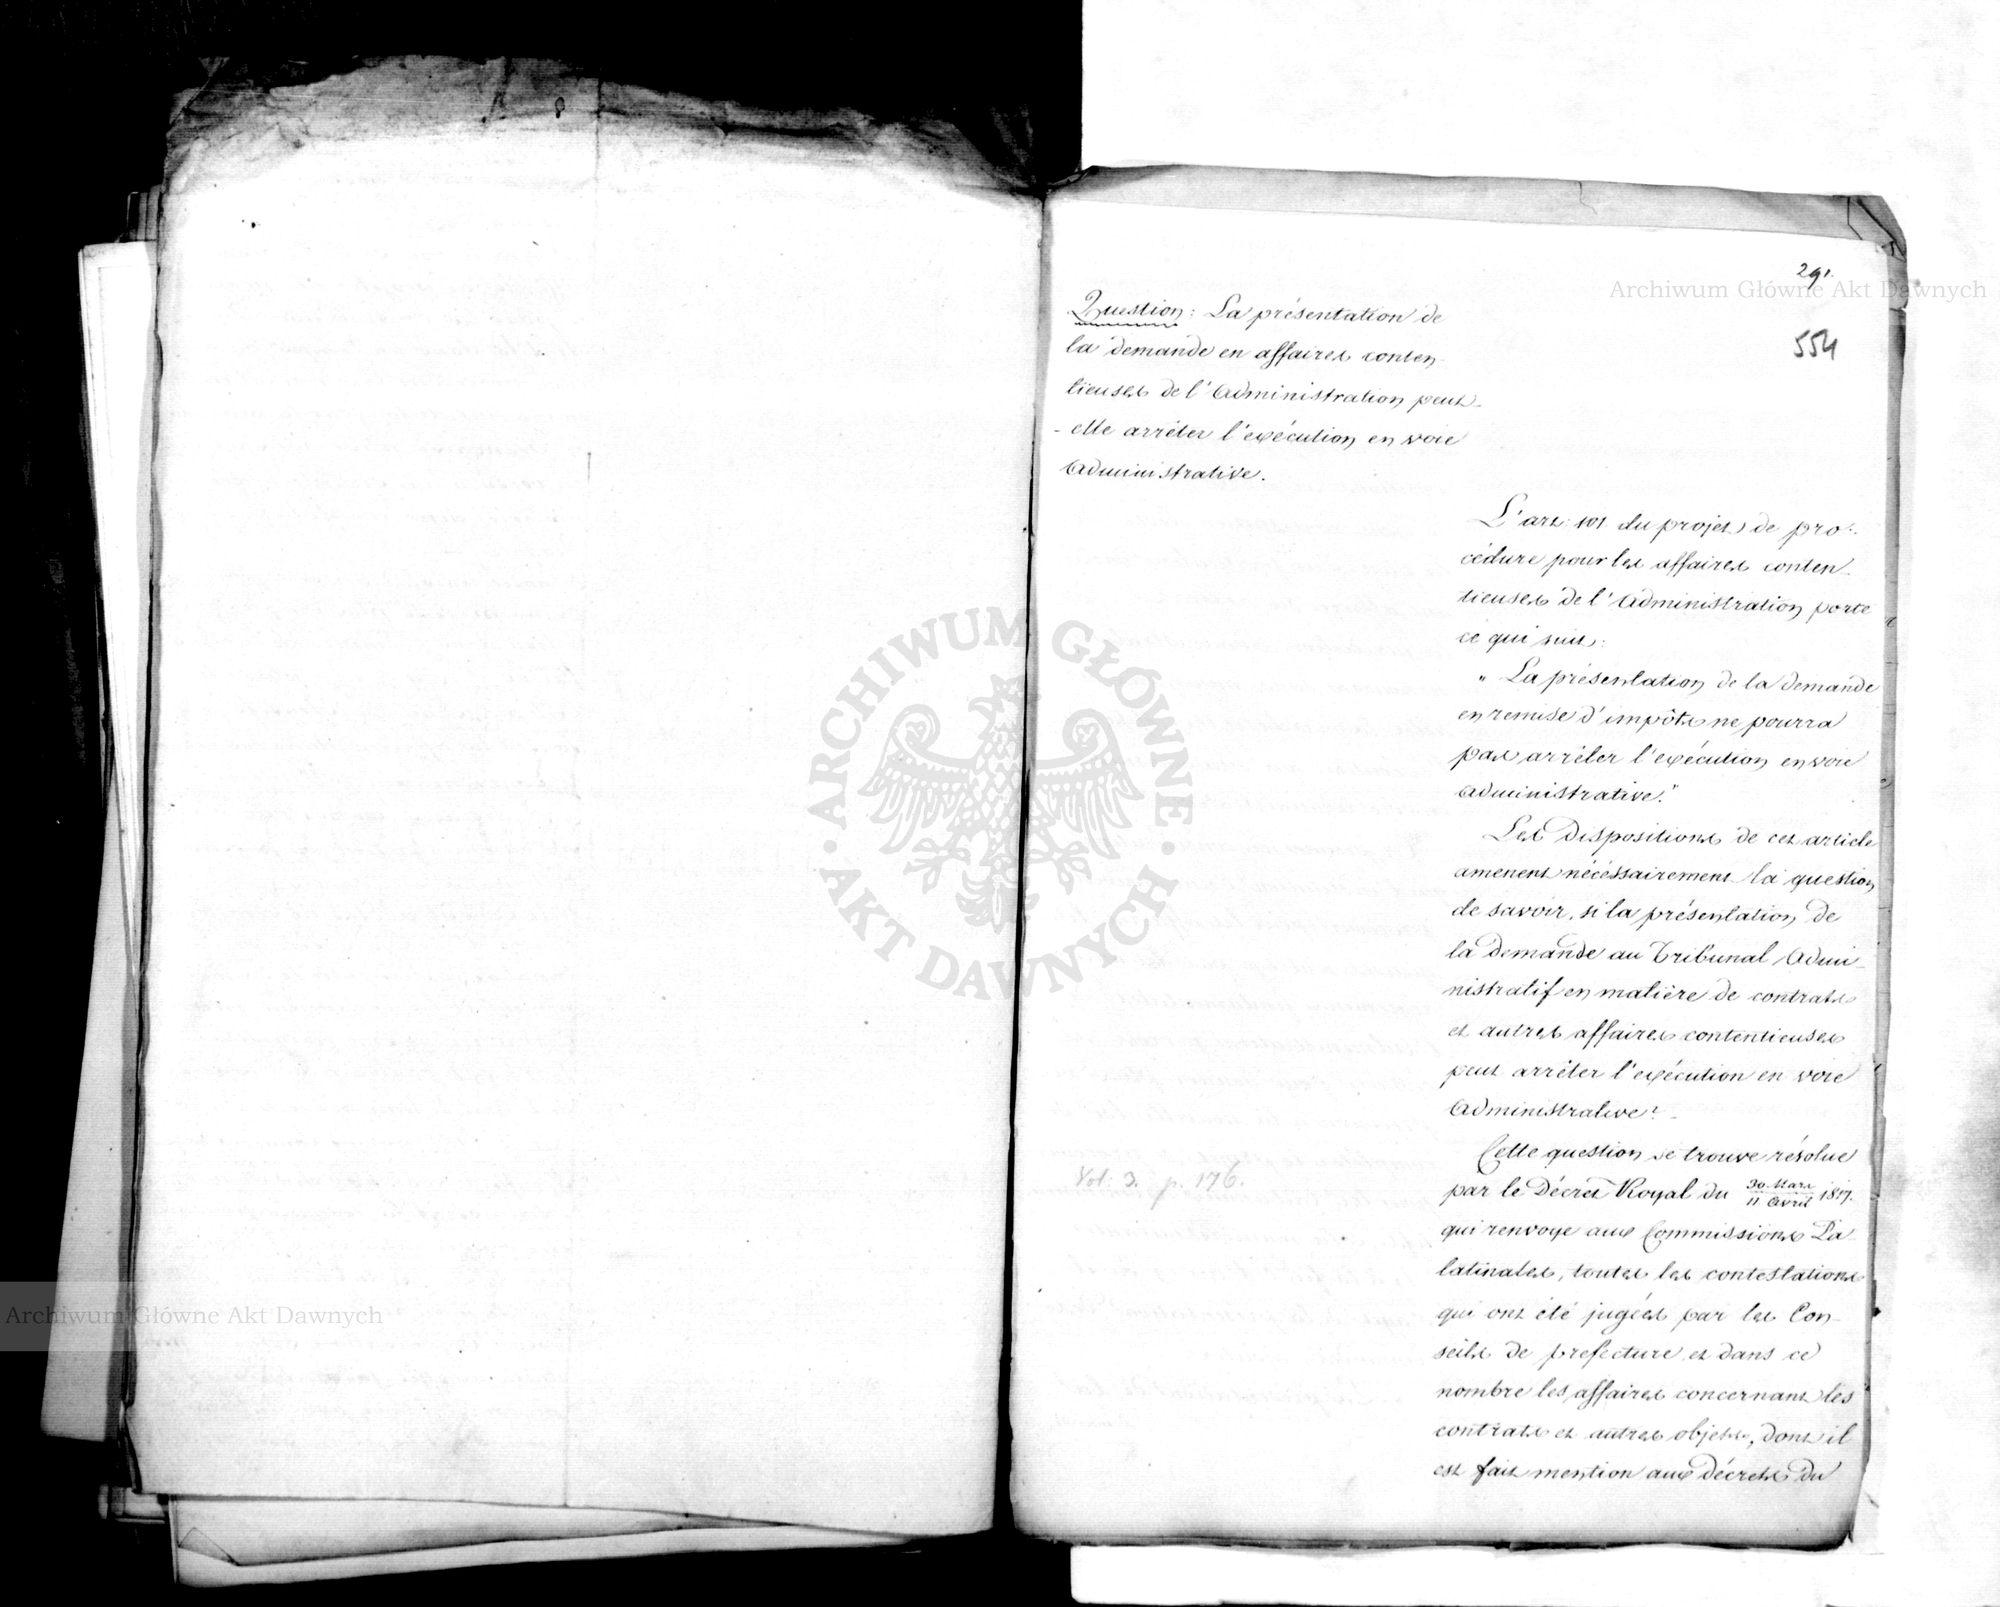 291.
554
Question: La présentation de
la demande en affaires conten-
tieuses de l'Administration peut-
-elle arrêter l'exécution en voie
Administrative.
L'art: 101 du projet de pro-
cédure pour les affaires conten-
tieuses de l'Administration porte
ce qui suit:
" La présentation de la demande
en remise d'impôts ne pourra
pas arrêter l'exécution en voie
administrative."
Les dispositions de cet article
amènent nécessairement la question
de savoir, si la présentation de
la demande au Tribunal Admi-
nistratif en matière de contrats
et autres affaires contentieuses
peut arrêter l'exécution en voie
Administrative?
Cette question se trouve résolue
par le Décret Royal du 30 Mars / 11 Avril 1817.
qui renvoye aux Commissions Pa-
latinales, toutes les contestations
qui ont été jugées par les Con-
seils de prefecture, et dans ce
nombre les affaires concernant les
contrats et autres objets, dont il
est fait mention aux décrets du
Vol: 3. p. 176.
Archiwum Główne Akt Dawnych
Archiwum Główne Akt Dawnych
ARCHIWUM GŁÓWNE
AKT DAWNYCH